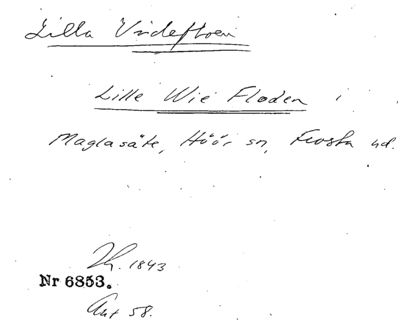 Lilla Videfloen
Lille Wie Floden i
Maglasäte, Höör sn, Frosta hd.
Th. 1843
Nr 6853.
Ant 58.